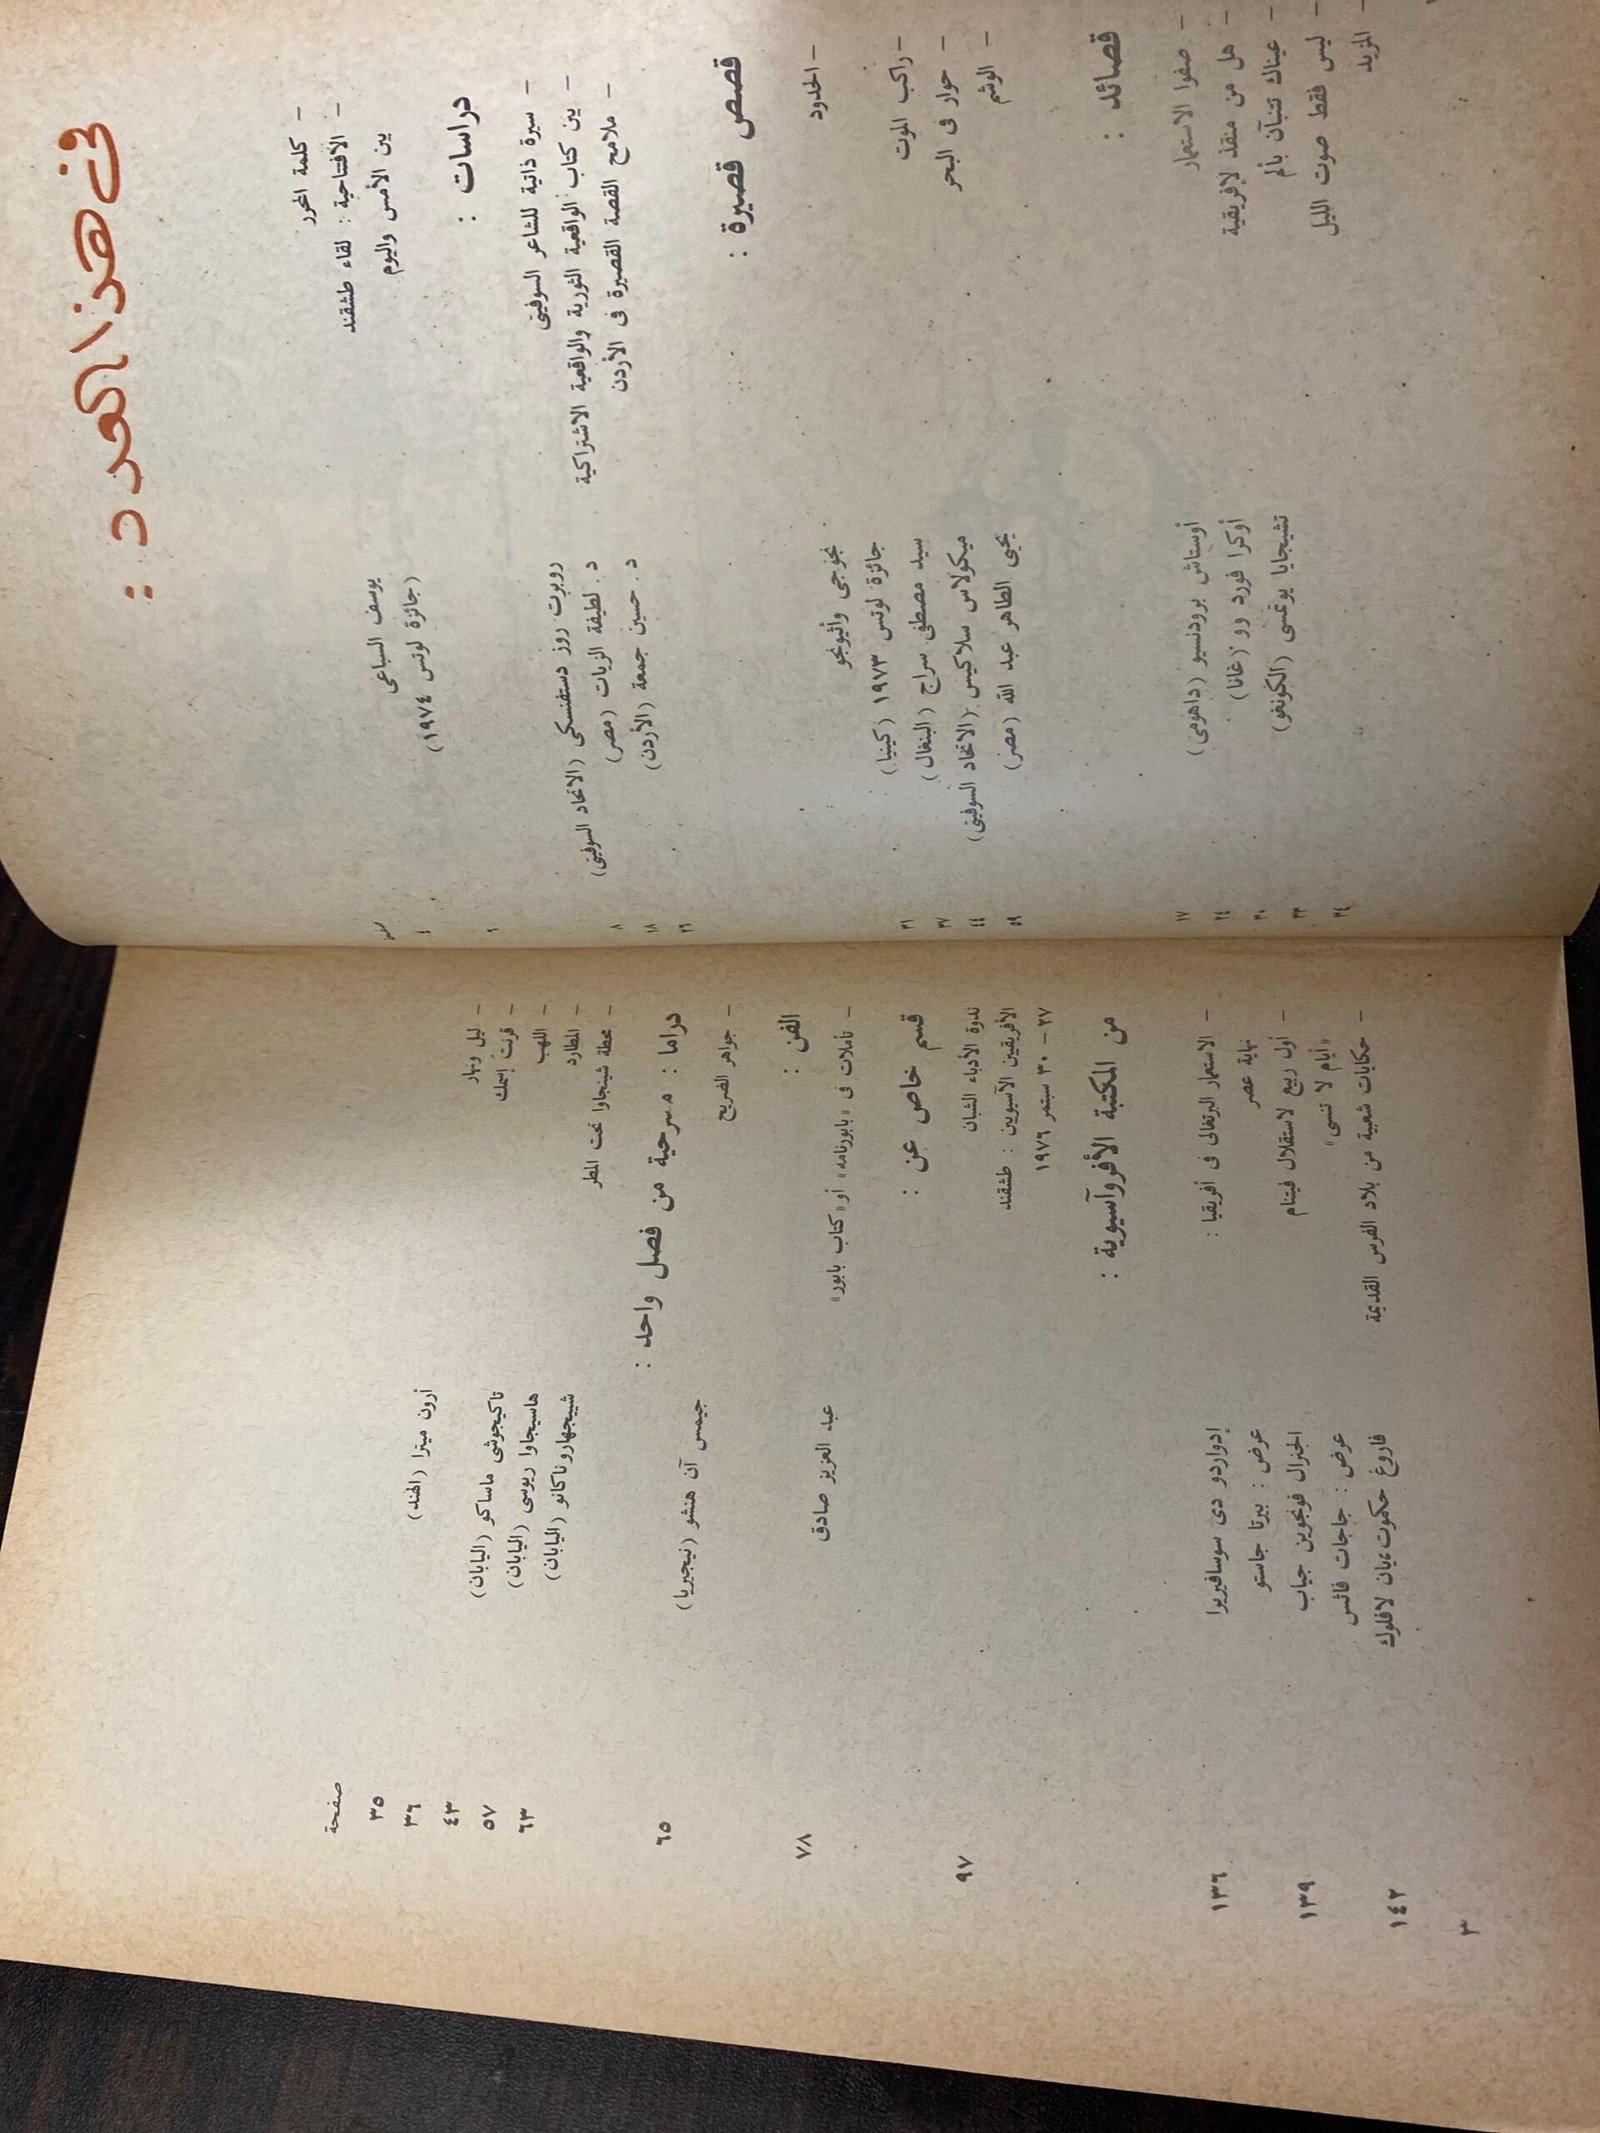 في هذا العدد :
صفحة
– كلمة المحرر
يوسف السباعى
٤
– الافتتاحية : لقاء طشقند
(جائزة لوتس ١٩٧٤)
بين الأمس واليوم
٦
دراسات :
– سيرة ذاتية للشاعر السوفيتى
روبرت روز دستفنسكى (الاتحاد السوفيتى)
٨
– بين كتاب الواقعية الثورية والواقعية الاشتراكية
د. لطيفة الزيات (مصر)
١٨
– ملامح القصة القصيرة فى الأردن
د. حسين جمعة (الأردن)
٢٦
قصص قصيرة :
– الحدود
نجوجى واثيونجو
جائزة لوتس ١٩٧٣ (كينيا)
٣١
– راكب الموت
سيد مصطفى سراج (البنغال)
٣٧
– حوار فى البحر
ميكولاس سلاكيس (الاتحاد السوفيتى)
٤٤
– الوشم
يحيى الطاهر عبد الله (مصر)
٥٩
قصائد :
– صفوا الاستعمار
أوستاش برودنسيو (داهومى)
١٧
– هل من منقذ لإفريقية
أوكرا فورد وو (غانا)
٢٤
– عيناك تنبآن بألم
تشيجايا بوغسى (الكونغو)
٣٠
– ليس فقط صوت الليل
٣٣
– المزيد
٣٤
صفحة
– ليل ونهار
أرون ميترا (الهند)
٣٥
– قرنت إسمك
٣٦
– اللهب
تاكيجوشى ماساكو (اليابان)
٤٣
– المطارد
هاسيجاوا ريوسى (اليابان)
٥٧
– محطة شينجاوا تحت المطر
شييجهارو ناكانو (اليابان)
٦٣
دراما : مسرحية من فصل واحد :
– جواهر الضريح
جيمس آن هنشو (نيجيريا)
٦٥
الفن :
– تأملات فى «بابورنامه» أو «كتاب بابور»
عبد العزيز صادق
٧٨
قسم خاص عن :
ندوة الأدباء الشبان
الأفريقيين الآسيويين : طشقند
٢٧ – ٣٠ سبتمبر ١٩٧٦
٩٧
من المكتبة الأفروآسيوية :
– الاستعمار البرتغالى فى أفريقيا :
إدواردو دى سوسافيريرا
١٣٦
نهاية عصر
عرض : بيرتا جاستو
– أول ربيع لاستقلال فيتنام
الجنرال فونجوين جياب
١٣٩
«أيام لا تنسى»
عرض : جاجات فائس
– حكايات شعبية من بلاد الفرس القديمة
فاروغ حكموت، يان لافلوك
١٤٢
٣